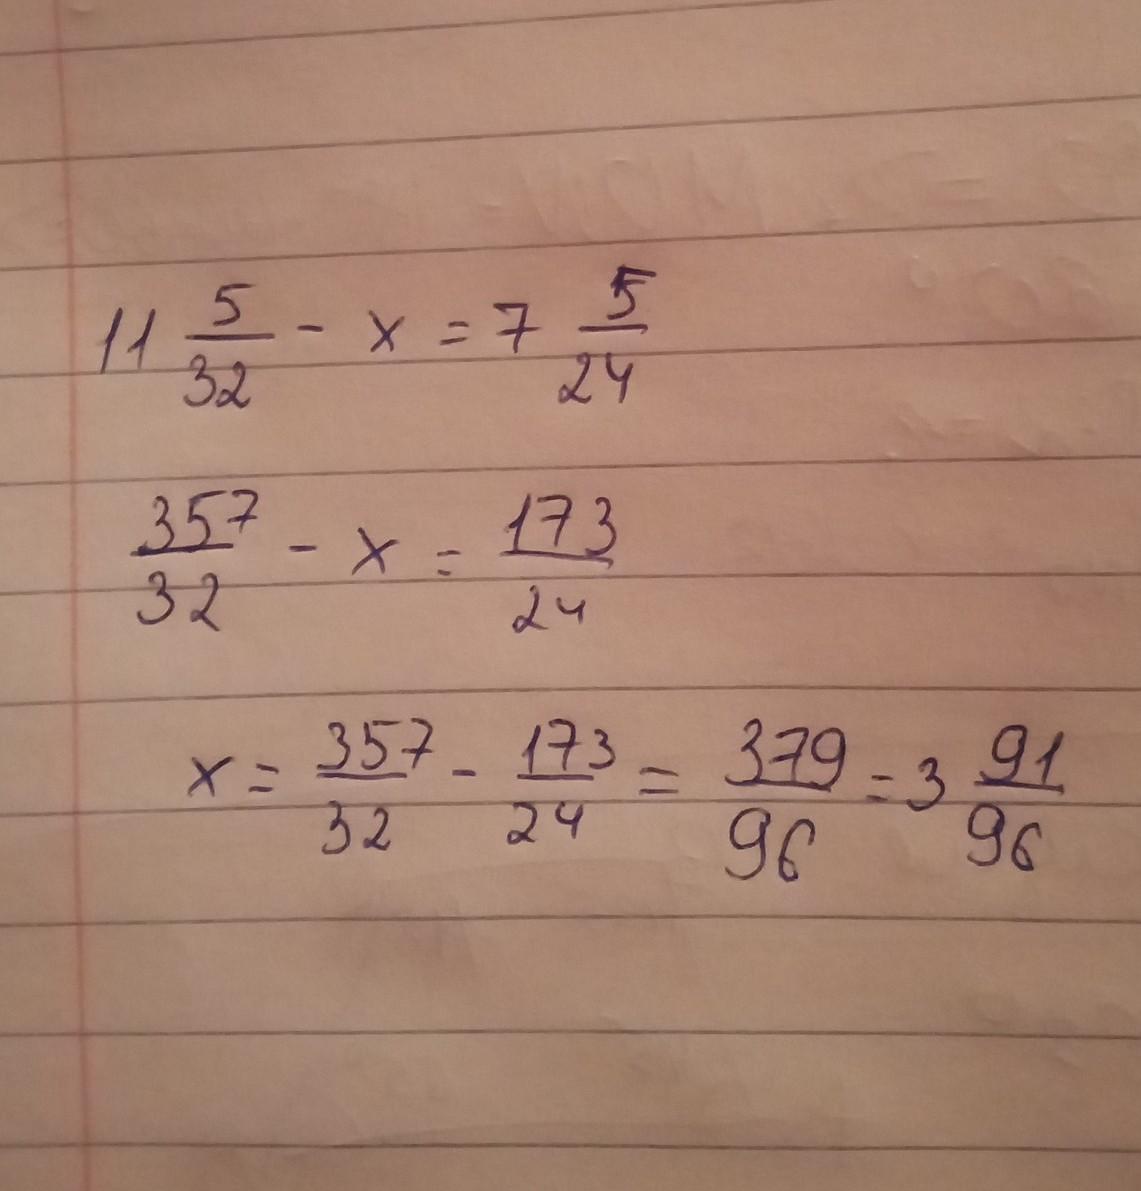 11 5/32 - x = 7 5/24
357/32 - x = 173/24
x = 357/32 - 173/24 = 379/96 = 3 91/96